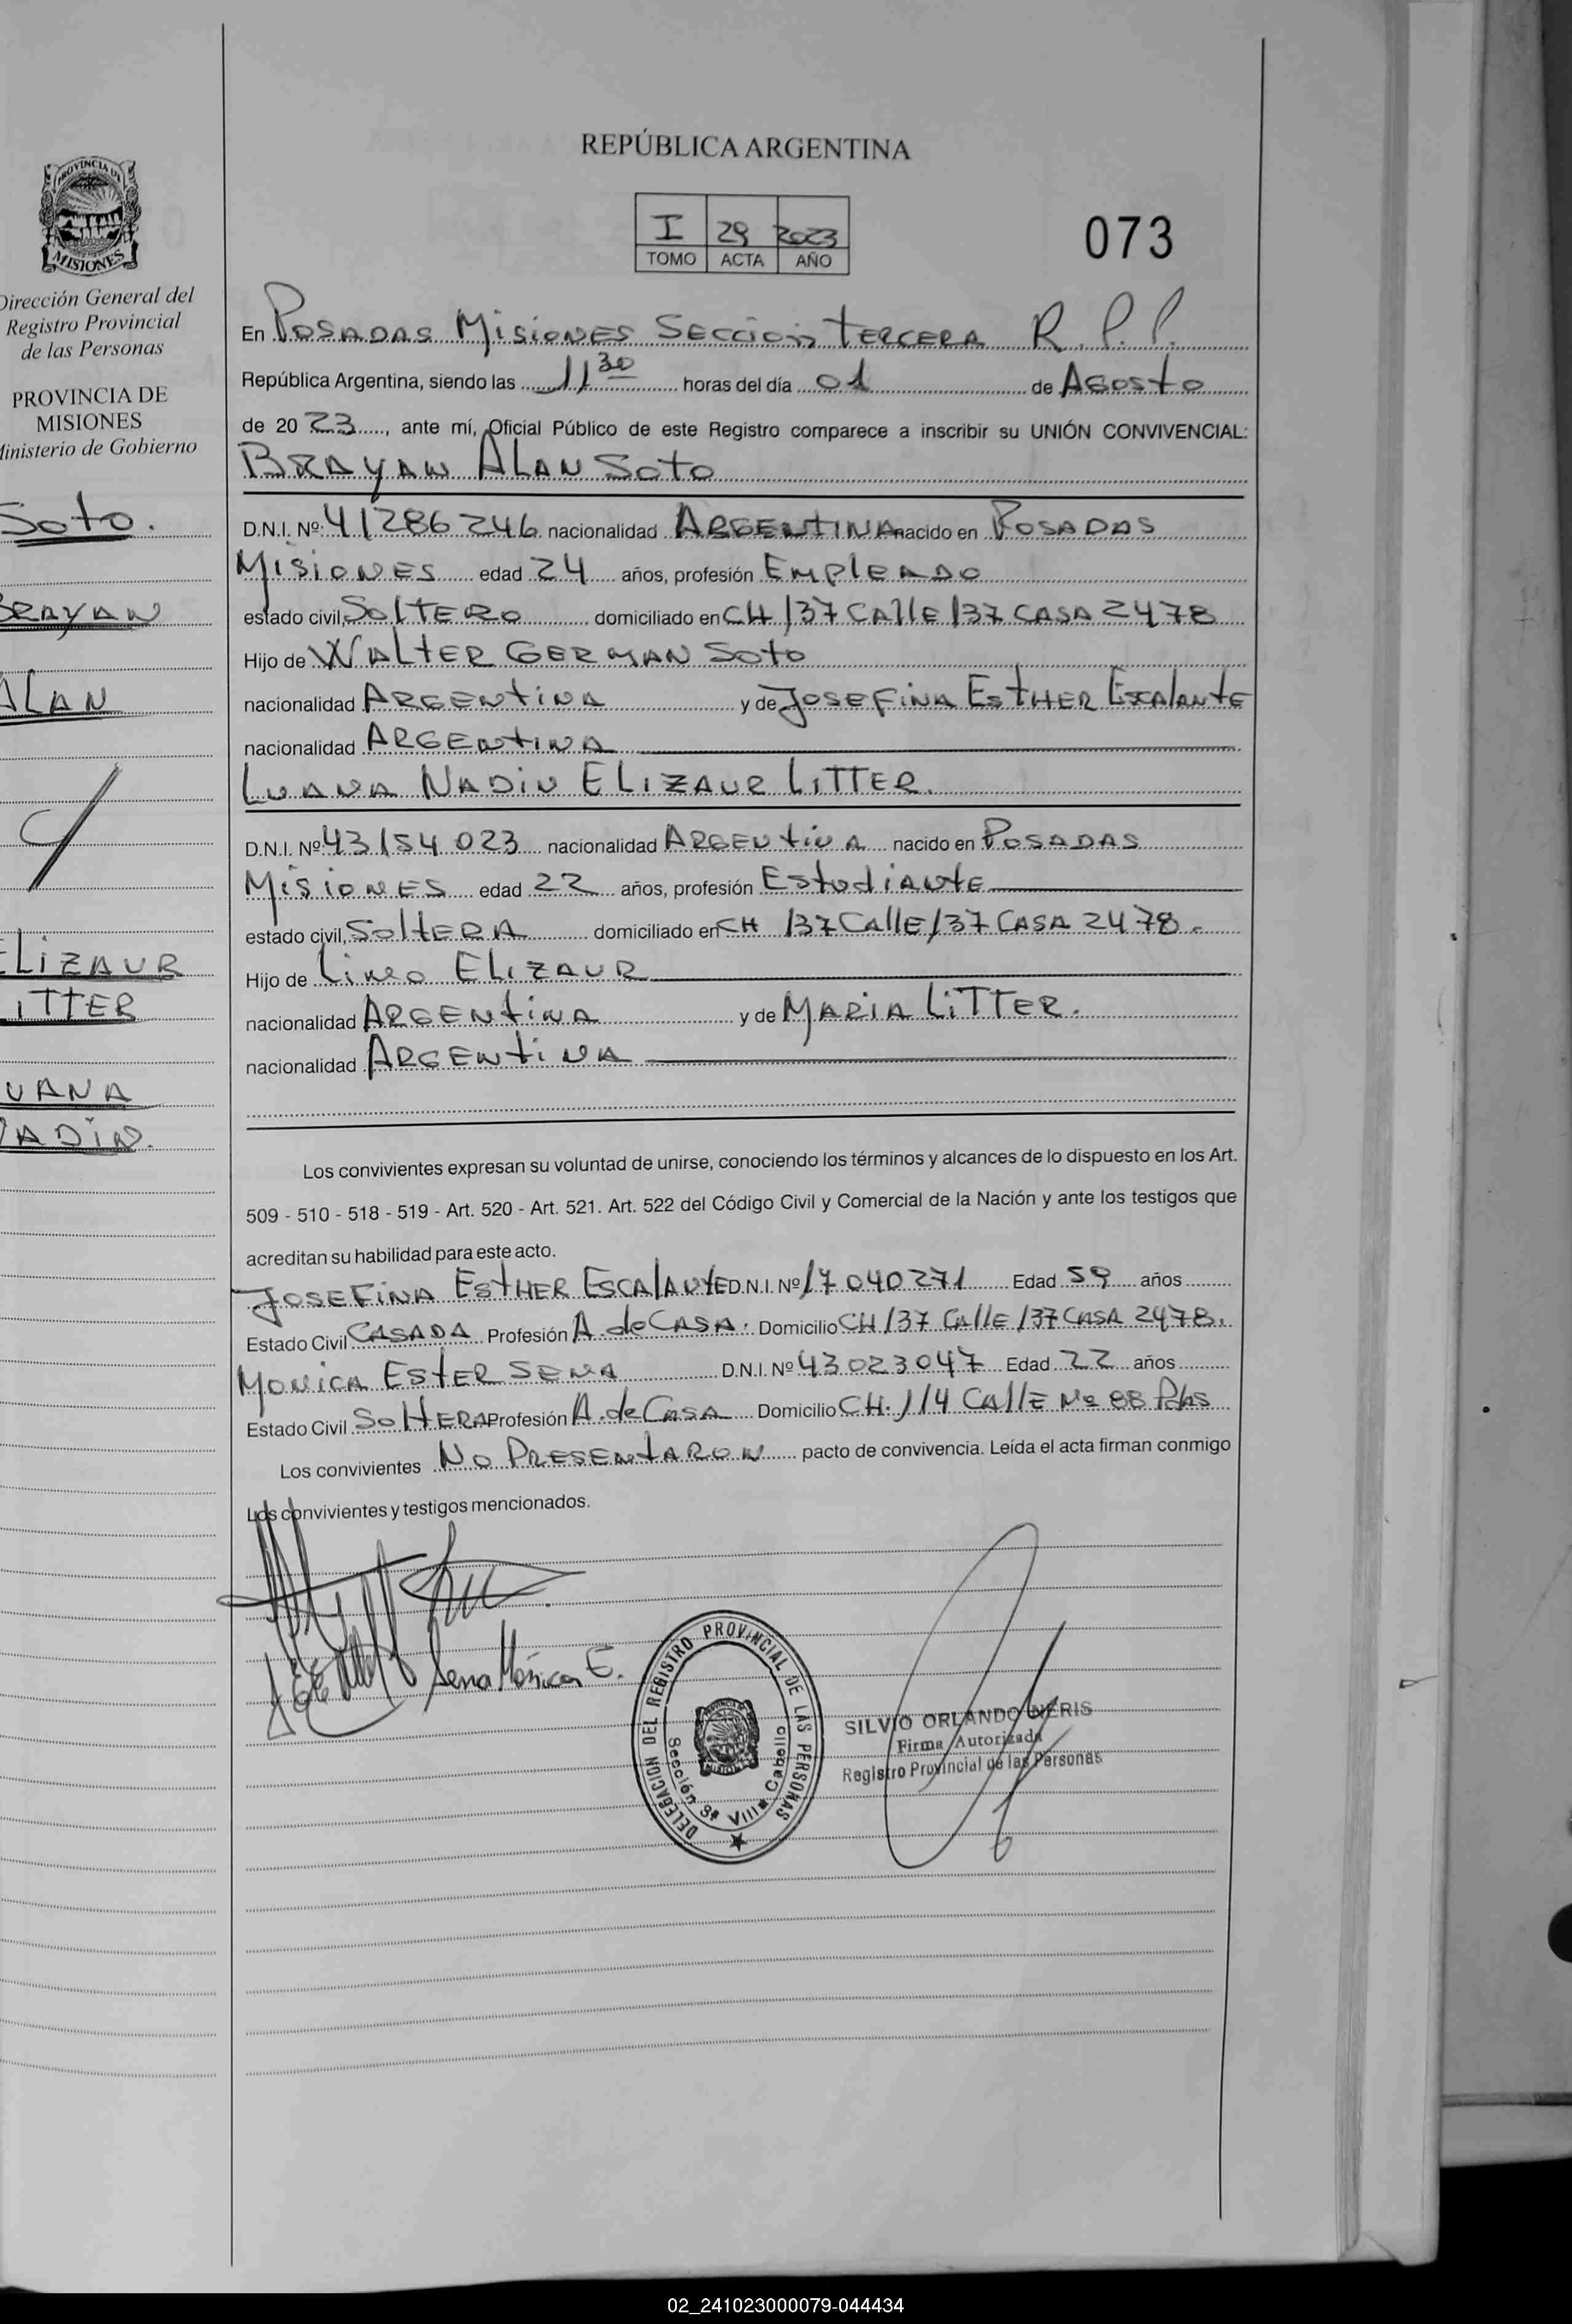 REPÚBLICA ARGENTINA
I 29 2023
TOMO ACTA AÑO
073
PROVINCIA DE
MISIONES
Dirección General del
Registro Provincial
de las Personas
PROVINCIA DE
MISIONES
Ministerio de Gobierno
Soto.
BRAYAN
ALAN
Y
ELIZAUR
LITTER
LUANA
NADIN.
En POSADAS MISIONES SECCION TERCERA R.P.P.
República Argentina, siendo las 11 30 horas del día 01 de AGOSTO
de 20 23, ante mí, Oficial Público de este Registro comparece a inscribir su UNIÓN CONVIVENCIAL:
BRAYAN ALAN SOTO
D.N.I. Nº 41286246 nacionalidad ARGENTINA nacido en POSADAS
MISIONES edad 24 años, profesión EMPLEADO
estado civil SOLTERO domiciliado en CH 137 CALLE 137 CASA 2478
Hijo de WALTER GERMAN SOTO
nacionalidad ARGENTINA y de JOSEFINA ESTHER ESCALANTE
nacionalidad ARGENTINA
LUANA NADIN ELIZAUR LITTER.
D.N.I. Nº 43154023 nacionalidad ARGENTINA nacido en POSADAS
MISIONES edad 22 años, profesión Estudiante
estado civil, SOLTERA domiciliado en CH 137 CALLE 137 CASA 2478.
Hijo de LINO ELIZAUR
nacionalidad ARGENTINA y de MARIA LITTER.
nacionalidad ARGENTINA
Los convivientes expresan su voluntad de unirse, conociendo los términos y alcances de lo dispuesto en los Art.
509 - 510 - 518 - 519 - Art. 520 - Art. 521. Art. 522 del Código Civil y Comercial de la Nación y ante los testigos que
acreditan su habilidad para este acto.
JOSEFINA ESTHER ESCALANTE D.N.I. Nº 17040271 Edad 59 años
Estado Civil CASADA Profesión A. de CASA. Domicilio CH 137 CALLE 137 CASA 2478.
MONICA ESTER SENA D.N.I. Nº 43023047 Edad 22 años
Estado Civil SOLTERA Profesión A. de CASA Domicilio CH. 114 CALLE Nº 88 Pdas
Los convivientes NO PRESENTARON pacto de convivencia. Leída el acta firman conmigo
Los convivientes y testigos mencionados.
Sena Mónica E.
DELEGACION DEL REGISTRO PROVINCIAL DE LAS PERSONAS
Sección 3ª Villa Cabello
SILVIO ORLANDO NERIS
Firma Autorizada
Registro Provincial de las Personas
02_241023000079-044434